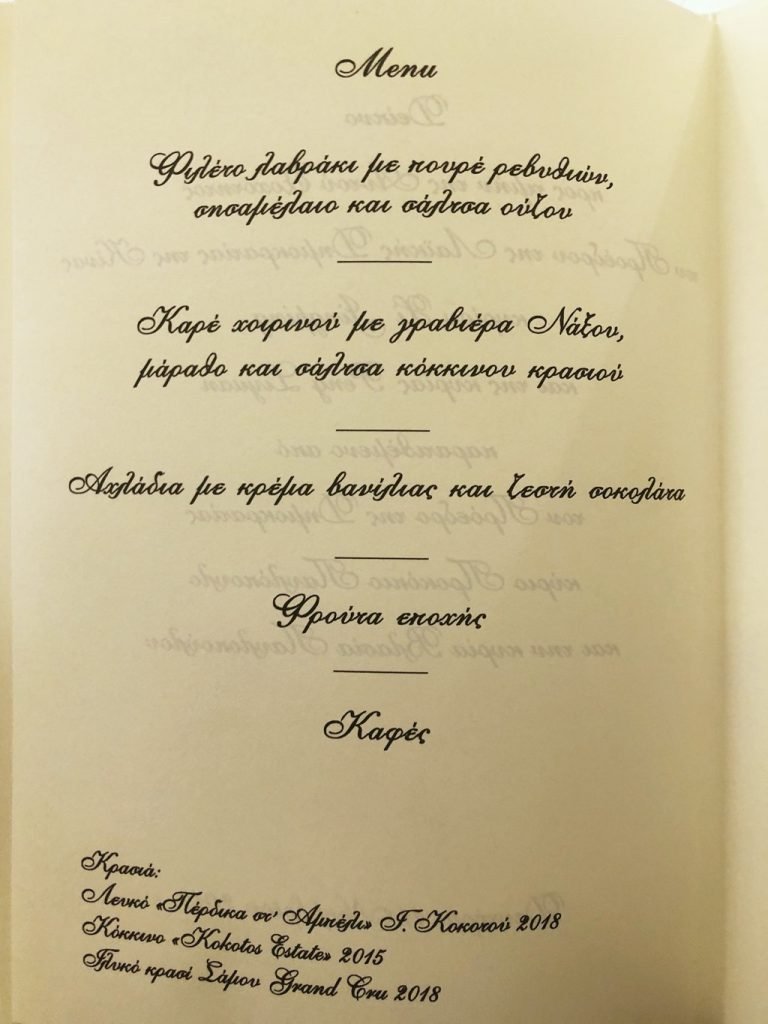 Menu
Φιλέτο λαβράκι με πουρέ ρεβυθιών,
σησαμέλαιο και σάλτσα ούζου
Καρέ χοιρινού με γραβιέρα Νάξου,
μάραθο και σάλτσα κόκκινου κρασιού
Αχλάδια με κρέμα βανίλιας και ζεστή σοκολάτα
Φρούτα εποχής
Καφές
Κρασιά:
Λευκό «Πέρδικα στ' Αμπέλι» Γ. Κοκοτού 2018
Κόκκινο «Kokotos Estate» 2015
Γλυκό κρασί Σάμου Grand Cru 2018